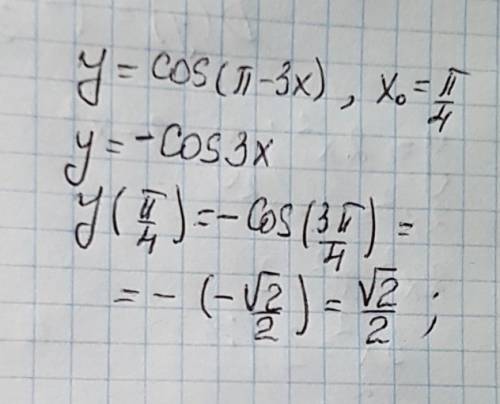 y = cos(π-3x), x₀ = π/4
y = -cos3x
y(π/4) = -cos(3π/4) =
= -(-√2/2) = √2/2;